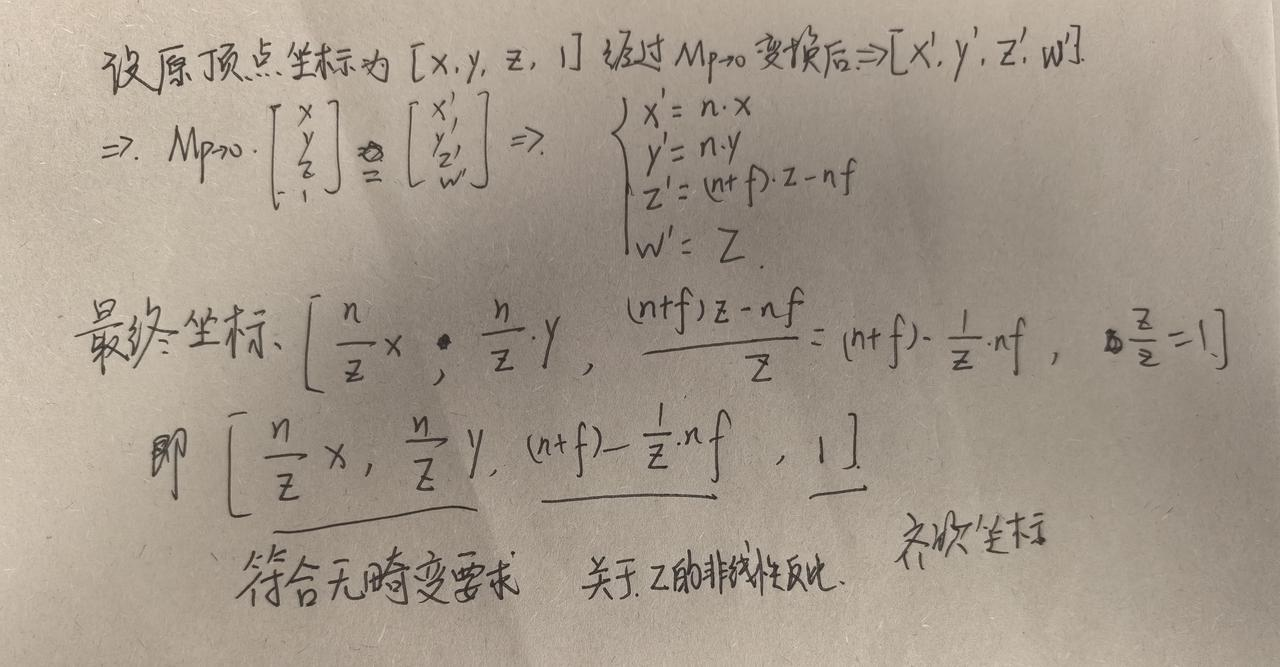 设原顶点坐标为 [x, y, z, 1] 经过 Mp→o 变换后⇒[x', y', z', w'].
⇒. Mp→o · [x y z 1] = [x' y' z' w'] ⇒. { x' = n·x
y' = n·y
z' = (n+f)·z - nf
w' = z.
最终坐标、[n/z x, n/z ·y, (n+f)z - nf / z = (n+f) - 1/z ·nf, z/z = 1.]
即 [n/z x, n/z y, (n+f) - 1/z ·nf, 1]
符合无畸变要求 关于z的非线性反比. 齐次坐标